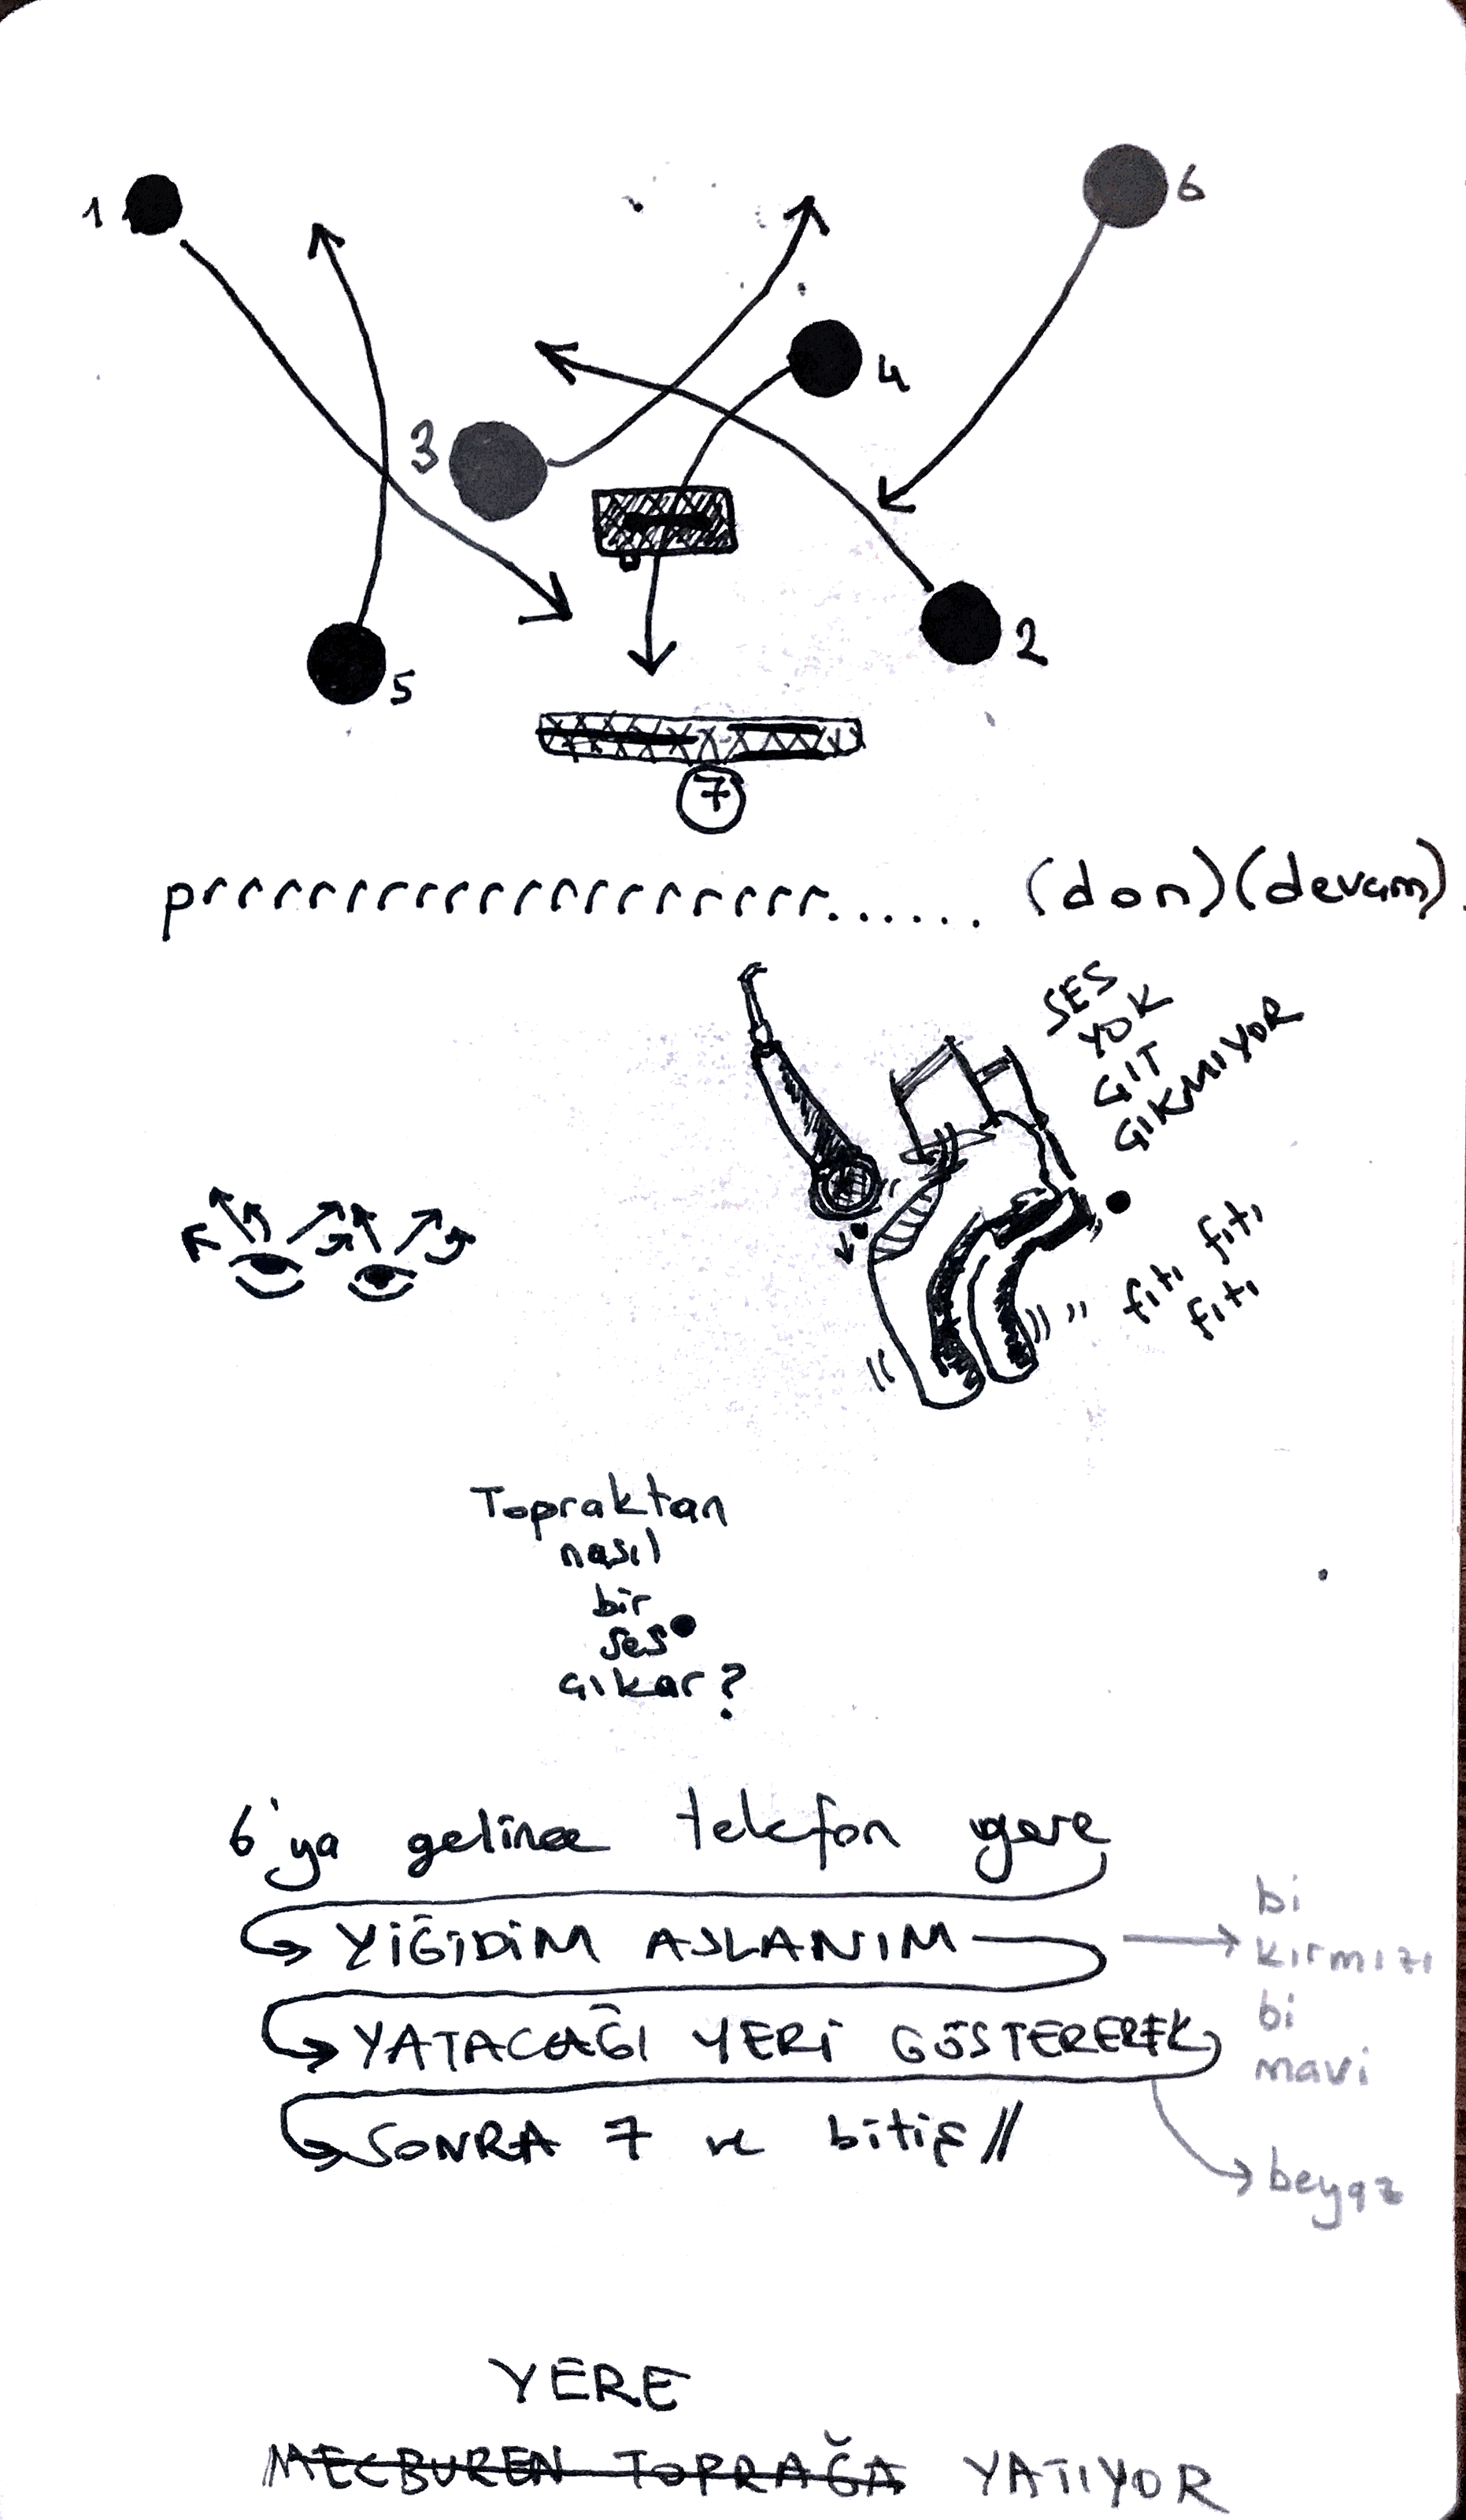 1
6
4
3
2
5
7
prrrrrrrrrrrrrrrrrr....... (don)(devam).
SES
YOK
GIT
GIKMIYOR
fıtı fıtı
fıtı
Topraktan
nasıl
bir
ses
çıkar?
6'ya gelince telefon yere
YİĞİDİM ASLANIM
YATACAĞI YERİ GÖSTEREREK
SONRA 7 ve bitiş //
bi
kırmızı
bi
mavi
beyaz
YERE
MECBUREN TOPRAĞA YATIYOR